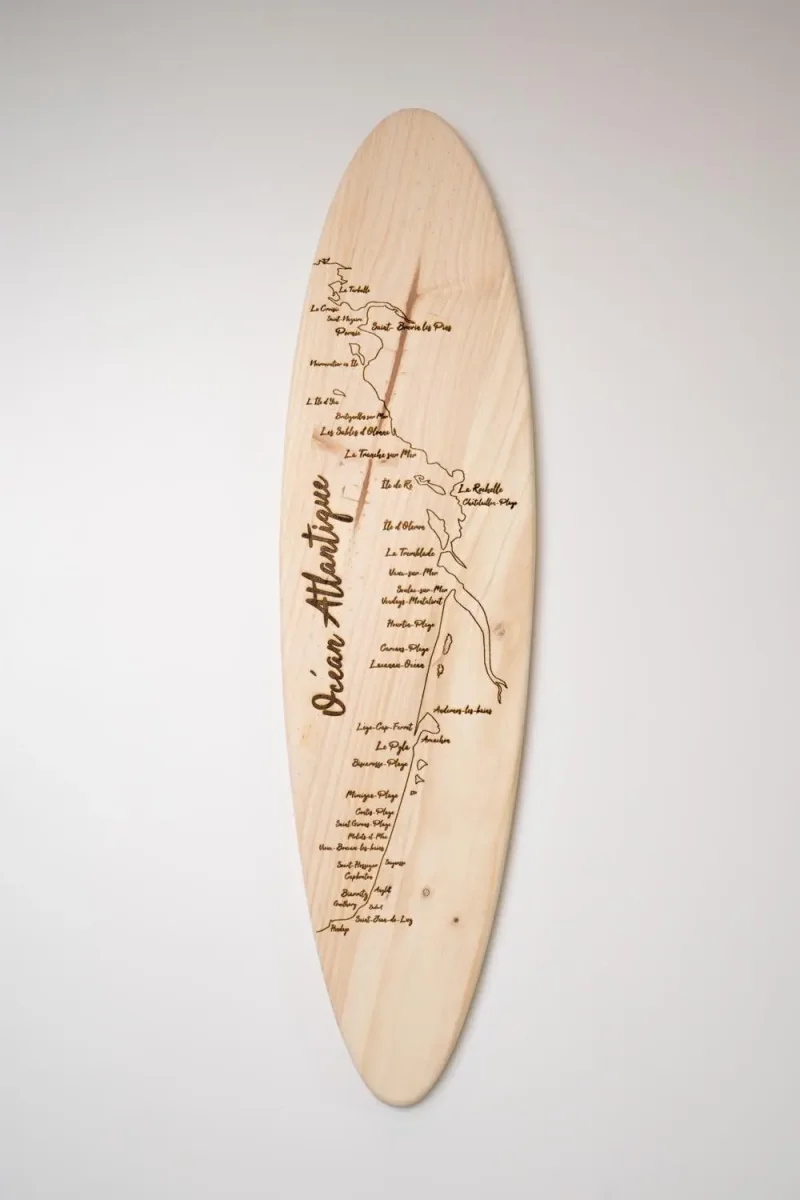 La Turballe
Le Croisic
Saint-Nazaire
Pornic
Saint-Brevin les Pins
Noirmoutier en Île
L'Île d'Yeu
Bretignolles sur Mer
Les Sables d'Olonne
La Tranche sur Mer
Île de Ré
La Rochelle
Châtelaillon-Plage
Île d'Oleron
La Tremblade
Vaux-sur-Mer
Soulac-sur-Mer
Vendays-Montalivet
Hourtin-Plage
Carcans-Plage
Lacanau-Océan
Océan Atlantique
Andernos-les-bains
Lège-Cap-Ferret
Arcachon
Le Pyla
Biscarrosse-Plage
Mimizan-Plage
Contis-Plage
Saint Girons-Plage
Moliets et Maa
Vieux-Boucau-les-bains
Soorts-Hossegor
Seignosse
Capbreton
Biarritz
Anglet
Guethary
Bidart
Saint-Jean-de-Luz
Hendaye